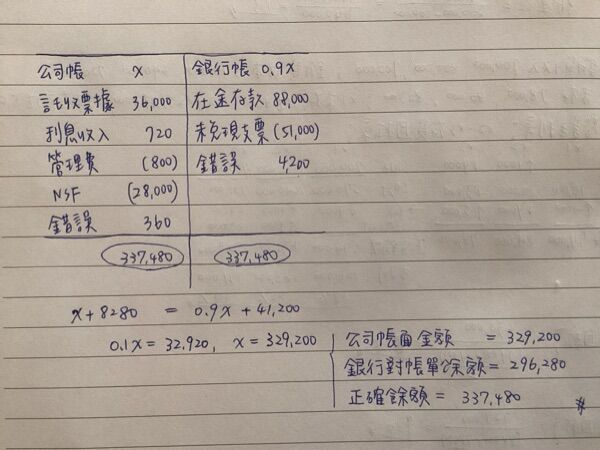 公司帳 x 銀行帳 0.9x
託收票據 36,000 在途存款 88,000
利息收入 720 未兌現支票 (51,000)
管理費 (800) 錯誤 4,200
NSF (28,000)
錯誤 360
337,480 337,480
x+8280 = 0.9x + 41,200
0.1x = 32.920, x = 329,200
公司帳面金額 = 329,200
銀行對帳單餘額 = 296,280
正確餘額 = 337,480 #